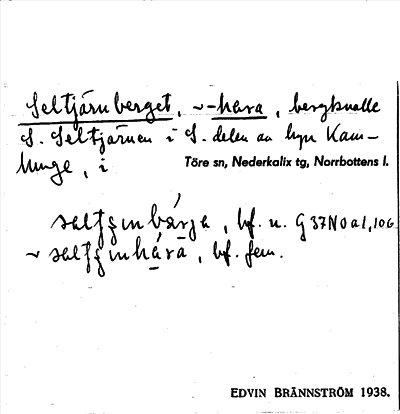 Seltjärnberget, ~-hara, bergknalle
S. Seltjärnen i S. delen av byn Kam-
lunge, i Töre sn, Nederkalix tg, Norrbottens l.
bf. n. G 37 N 0 a 1, 106
~ bf. fem.
EDVIN BRÄNNSTRÖM 1938.